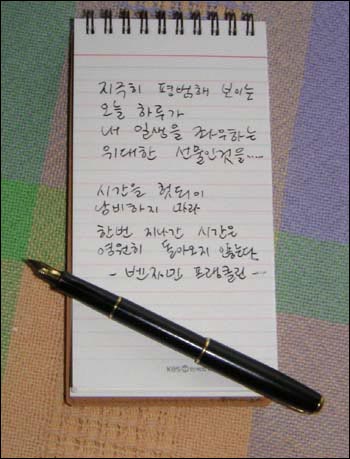 지극히 평범해 보이는
오늘 하루가
내 일생을 좌우하는
위대한 선물인것을....
시간을 헛되이
낭비하지 마라
한번 지나간 시간은
영원히 돌아오지 않는다
- 벤자민 프랭클린 -
KBS